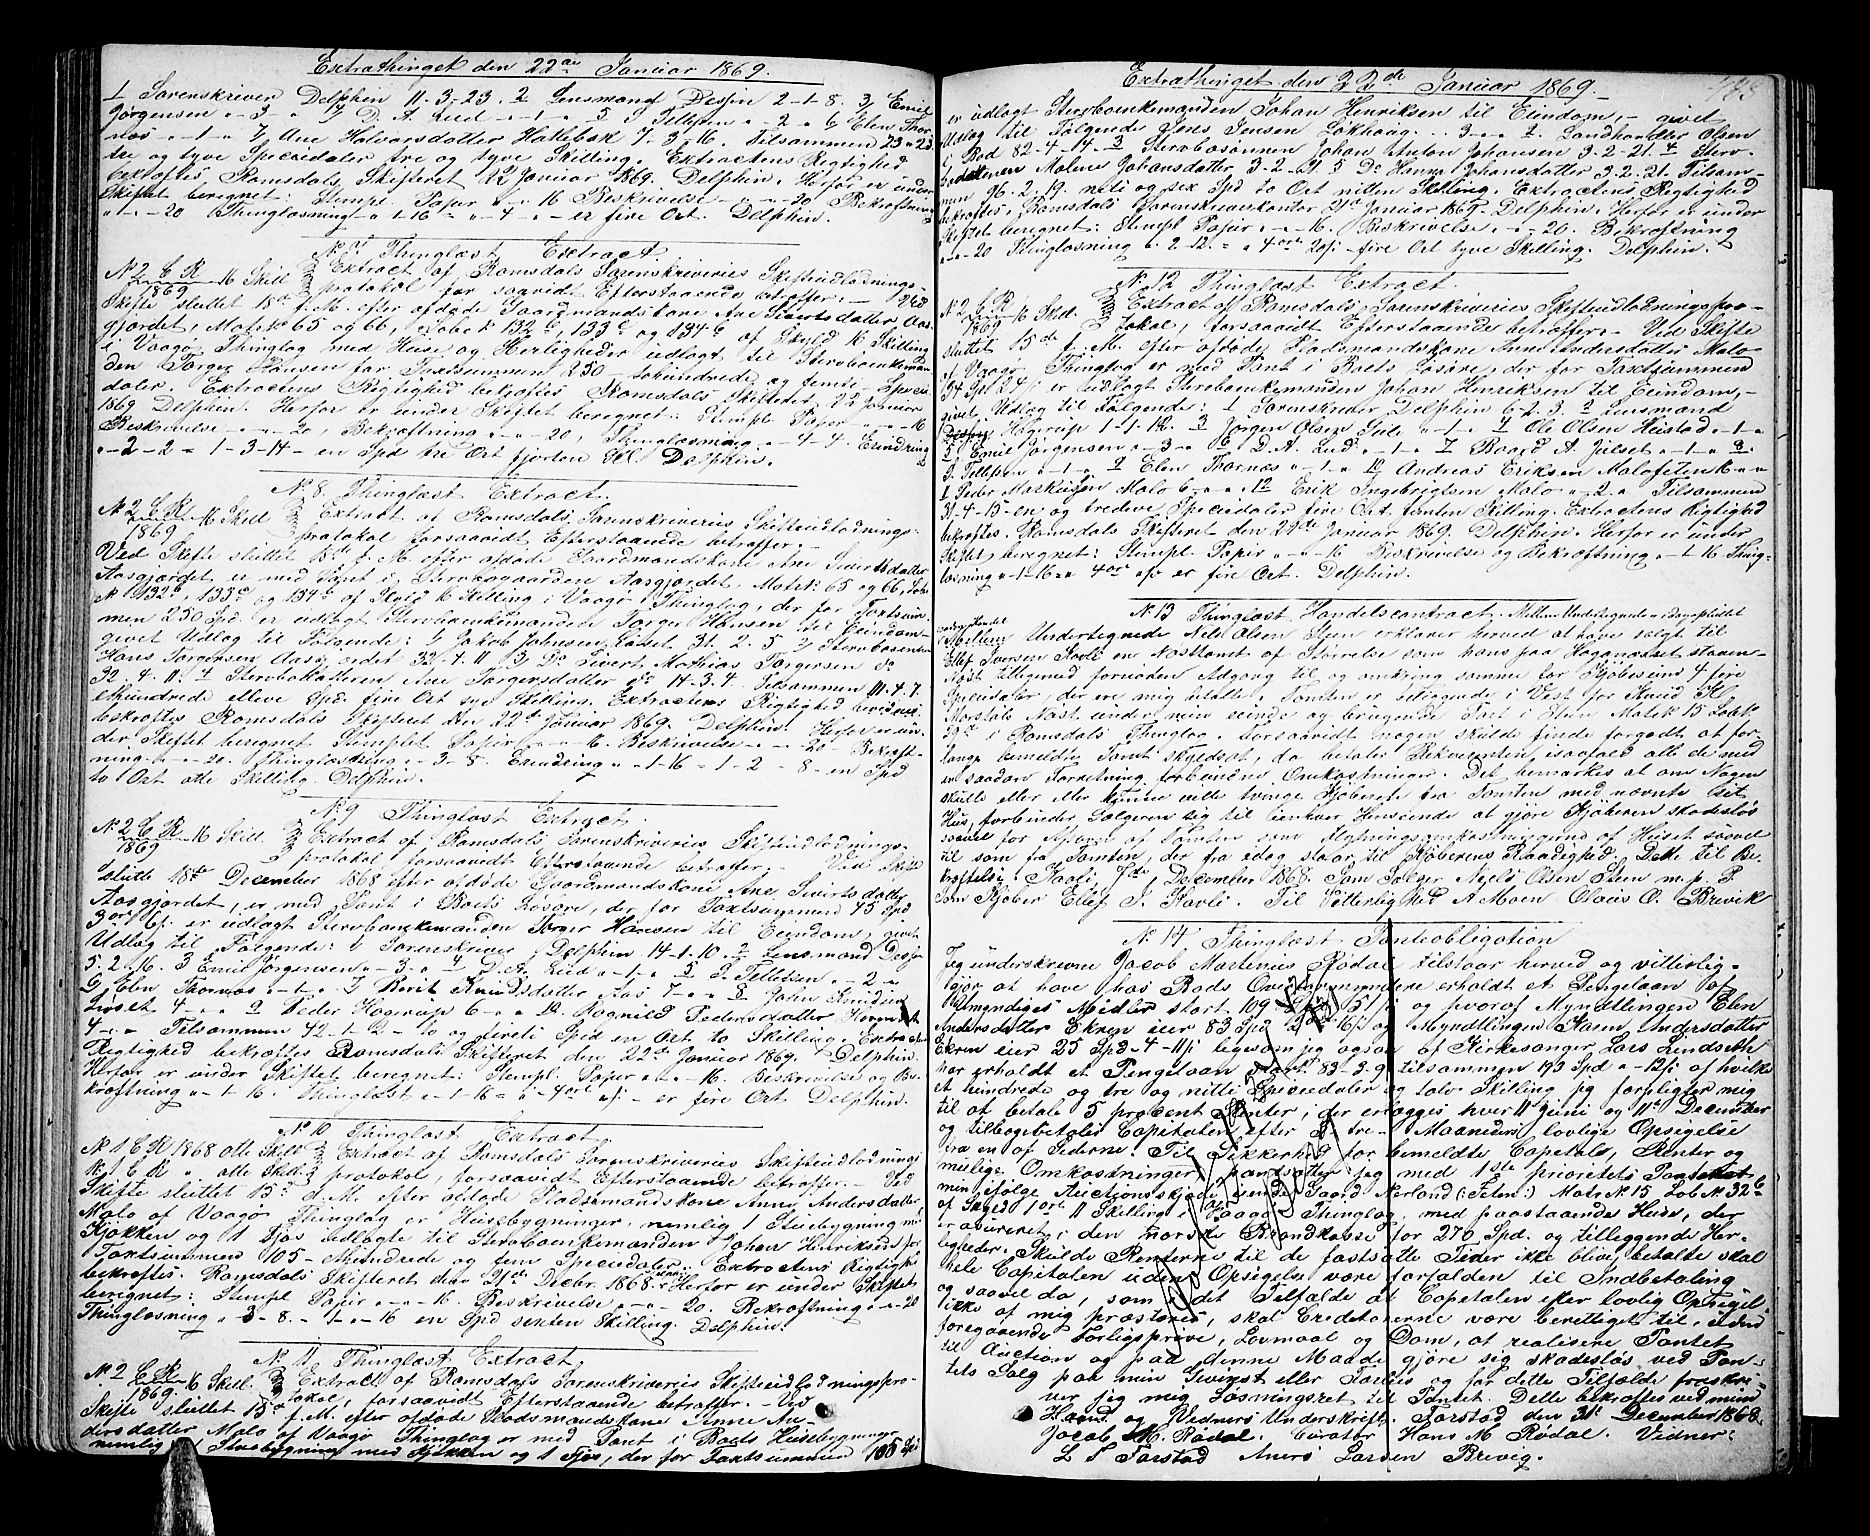 Extrathinget den 22de Januar 1869.
1 Sorenskriver Delphin 11-3-23. 2 Lensmand 2-1-8. 3 Emil
Jørgensen „-3-„ 4 D. A. Lud „-1-„ 5 J Tellefsen „-2-„ 6 Elen Thor-
næs „-1-„ 7 Ane Halvorsdatter Hatlebak 7-3-16. Tilsammen 23 „ 23
tre og tyve Speciedaler tre og tyve Skilling. Extractens Rigtighed
bekræftes Romsdals Skifteret 22 Januar 1869. Delphin. Herfor er under
Skiftet beregnet: Stempl. Papir „-„-16 Beskrivelse „-„-20 Bekræftning
„-„-20 Thinglæsning „-1-16 = „-4-„- er fire Ort. Delphin.
No 7 Thinglæst Extract
No 2 C. R. 16 Skill Extract af Romsdals Sorenskriveries Skifteudlodnings-
1869 protokol for saavidt Efterstaaende betræffer. - Ved
Skifte sluttet 18de f. M. efter afdøde Gaardmandskone Ane Sivertsdatter Aas-
gjordet, Matr. No 65 og 66, Løbe No 132b, 133c og 134c af Skyld 16 Skilling
i Vaagø Thinglag med Huse og Herligheder udlagt til Sterboenkeman-
den Torger Hansen for Taxtsummen 250 - tohundrede og femti Specie-
daler. Extractens Rigtighed bekræftes Romsdals Skifteret 22 Januar
1869 Delphin. Herfor er under Skiftet beregnet: Stempl. Papir „-„-16
Beskrivelse „-„-20, Bekræftning „-„-20, Thinglæsning „-4-4. Erindring
„-2-2 = 1-3-14 - en Spd tre Ort fjorten Skl. Delphin.
No 8. Thinglæst Extract.
No 2 C. R. 16 Skill Extract af Romsdals Sorenskriveries Skifteudlodnings-
1869 protokol forsaavidt Efterstaaende betræffer. -
Ved Skifte sluttet 18de f. M. efter afdøde Gaardmandskone Ane Sivertsdatter
Aasgjordet er med Pant i Sterbogaarden Aasgjordet, Matr: 65 og 66, Løbe
No 132b, 133c og 134c af Skyld 16 Skilling i Vaagø Thinglag, der for Taxtsum-
men 250 Spd. er udlagt Sterboenkemanden Torger Hansen til Eiendom-
givet Udlag til Følgende: 1 Jakob Johnsen 31. 2. 5 2 Sterbosønnen
Hans Torgersen Aasgjordet 32. 4. 11. 3 Do Sivert Mathias Torgersen do
32. 4. 11. 4 Sterbodatteren Ane Torgersdatter do 14-3.4. Tilsammen 111. 4. 7.
Ethundrede elleve Spd. fire Ort syv Skilling. Extractens Rigtighed
bekræftes Romsdals Skifteret den 22de Januar 1869. Delphin. Herfor er un-
der Skiftet beregnet Stemplet Papir „-„-16. Beskrivelse „-„-20 Bekræft-
ning „-„-20. Thinglæsning „-3-8. Erindring „-1-16 = 1-2-8- en Spd
to Ort otte Skilling. Delphin.
No 9 Thinglæst Extract.
No 2 C. R. 16 Skill. Extract af Romsdals Sorenskriveries Skifteudlodnings-
1869 protokol forsaavidt Efterstaaende betræffer. - Ved Skifte
slutte 18de December 1868 efter afdøde Gaardmandskone Ane Sivertsdatter
Aasgjordet, er med Pant i Boets Løsøre, der for Taxtsummen 75 Spd
er udlagt Sterboenkemanden Torger Hansen til Eiendom, givet
Udlag til Følgende: 1 Sorenskriver Delphin 14-1-10. 2 Lensmand
5. 2. 16. 3 Emil Jørgensen „-3-„ 4 D. A. Lud „-1-„ 5 J. Tellefsen „-2-„
6 Elen Thornæs „-1-„ 7 Berit Knudsdatter Aas 7-„-„ 8 John Knudsen
4-„-„ 9 Peder Hagerup 6-„-„ 10 Ragnild Pedersdatter
4-„-„ Tilsammen 42-1-2- to og firti Spd en Ort to Skilling. Extractens
Rigtighed bekræftes Romsdals Skifteret den 22de Januar 1869. - Delphin.
Herfor er under Skiftet beregnet: Stempl. Papir „-„-16. Beskrivelse og Be-
kræftning „-1-16. Thinglæst „-1-16 = „-4 ort „/- er fire Ort. Delphin.
No 10 Thinglæst Extract.
No 1 C. R. 1868 otte Skill Extract af Romsdals Sorenskriveries Skifteudlodnings
No 1 C R „ otte Skill. protokol, forsaavidt Efterstaaende betræffer. - Ved
Skifte sluttet 15de d. M. efter afdøde Pladsmandskone Anne Andersdatter
Malo af Vaagø Thinglag er Husebygninger, nemlig 1 Stuebygning m:
Kjøkken og 1 Fjøs udlagte til Sterboenkemanden Johan Henriksen for
Taxtsummen 105 - Ethundrede og fem Speciedaler. Extractens Rigtigh
bekræftes. Romsdals Skifteret den 21de Decbr. 1868. Herfor er under Skiftet
beregnet: Stempl Papir „-„-16. Beskrivelse „-„-20. Bekræftning „-„-20
Thinglæsning „-3-8. = 1-„-16 en Spd sexten Skilling. Delphin.
No 11 Thinglæst Extract.
No 2 C. R. 16 Skill. Extract af Romsdals Sorenskriveries Skifteudlodningspro-
1869. tokol, forsaavidt Efterstaaende betræffer. - Ved
Skifte sluttet 15de f. M. efter afdøde Pladsmandskone Anne An-
dersdatter Malo af Vaagø Thinglag er med Pant i Boets Husebygninger
nemlig 1 Stuebygning med Kjøkken og 1 Fjøs, der for Taxtsummen 105 Spd
Extrathinget den 22de Januar 1869.
er udlagt Sterboenkemanden Johan Henriksen til Eiendom, - givet
Udlag til Følgende Jens Jensen 3-„-„ 2. Landhandler Olsen
i Bod 82-4-14. 3 Sterbosønnen Johan Anton Johansen 3-2-21. 4 Sterbo-
datteren Malene Johansdatter 3-2-21. 5 Do Hanna Johansdatter 3-2-21. Tilsam-
men 96. 2. 19. niti og sex Spd to Ort nitten Skilling. Extractens Rigtighed
bekræftes, Romsdals Sorenskriverkontor 21de Januar 1869. Delphin. Herfor er under
Skiftet beregnet: Stempl Papir „-„-16. Beskrivelse „-„-20. Bekræftning
„-„-20 Thinglæsning „. 2-12 = „ 4 ort 20/- fire Ort tyve Skilling. Delphin.
No 12 Thinglæst Extract.
No 2 C. R. 16 Skil. Extract af Romsdals Sorenskriveries Skifteudlodningspro-
1869 tokol, forsaavidt Efterstaaende betræffer. - Ved Skifte
sluttet 15de f. M. efter afdøde Pladsmandskone Anne Andersdatter Malo
af Vaagø Thinglag er med Pant i Boets Løsøre, der for Taxtsummen
34 Spd 24/ er udlagt Sterboenkemanden Johan Henriksen til Eiendom, -
givet Udlag til Følgende: 1 Sorenskriver Delphin 6-2-3. 2 Lensmand
Hagerup 1-1-12. 3 Jørgen Olsen Jule „-1-„ 4 Ole Olsen Hustad „-1-„
5 Emil Jørgensen „-3-„ 6 D. A. Lud. „-1-„ 7 Baard A. Julset „-1-„ 8.
J. Tellefsen „-1-„ 9 Elen Thornæs „-1-„ 10 Andreas Eriksen Malofeten 6-„-„
11 Peder Markussen Malo 6-„-„ 12 Erik Ingebrigtsen Malo „-2-„ Tilsammen
31-4-15 - en og tredeve Speciedaler fire Ort femten Skilling. Extractens Rigtighed
bekræftes. Romsdals Skifteret den 21de Januar 1869. Delphin. Herfor er under
Skiftet beregnet: Stempl. Papir „-„-16 Beskrivelse og Bekræftning „-1-16 Thing-
læsning „-1-16 = „ 4 ort „/- er fire Ort. Delphin.
No 13 Thinglæst Handelscontract. Mellem Undertegnede
Undertegnede Niels Olsen Steen erklærer herved at have solgt til
Ellef Iversen Havli en Nøsttomt af Størrelse som hans paa Hoganæsset staaen-
Nøst tilligemed fornøden Adgang til og omkring samme for Kjøbesum 4 fire
Speciedaler, der ere mig betalte. Tomten er beliggende i Vest for Knud K.
Nøst under min eiende og brugende Part i Steen Matr. No 15 Løb No
i Romsdals Thinglag. Forsaavidt nogen skulde finde forgodt at for-
lange bemeldte Tomt skyldsat, da betaler Rekvirenten isaafald alle de med
en saadan Forretning forbundne Omkostninger. Det bemærkes at om Nogen
skulle eller kunne ville tvinge Kjøberen fra Tomten med nævnte sit
Hus, forbinder Sælgeren sig til i enhver Henseende at gjøre Kjøberen skadesløs
saavel for Afsavn af Tomten som Flytningsomkostningerne af Huset saavel
til som fra Tomten, der fra idag staar til Kjøberens Raadighed. Dette til Be-
kræftelse. Havli 7de December 1868. Som Sælger Niels Olsen Steen m. p. P.
Som Kjøber Ellef I. Havli. Til Vitterlighed A Moen Olaus O. Brevik
No 14 Thinglæst Panteobligation
Jeg underskrevne Jacob Martinius Rødal tilstaar herved og vitterlig-
gjør at have hos Bods Overformynderie erholdt et Pengelaan af
Umyndiges Midler stort 109 Spd 1 51/ og hvoraf Myndlingen Elen
Andersdatter Ekren eier 83 Spd 2 ort 16/ og Myndlingen Karen Andersdatter
Ekren eier 25 Spd-4-11/ ligesom jeg ogsaa af Kirkesanger Lars Lindseth
har erholdt et Pengelaan stort 83-3-9 tilsammen 193 Spd „-12/ af hvilke
et hundrede og tre og nitti Speciedaler og tolv Skilling jeg forpligter mig
til at betale 5 procent Renter, der erlægges hver 11 Juni og 11te December
og tilbagebetaler Capitalen efter 3 tre Maaneders lovlige Opsigelse
fra en af Siderne. Til Sikkerhed for bemeldte Capital, Renter og
mulige Omkostninger pantsætter jeg med 1ste prioritets Panteret
min ifølge Auctionsskjøde eiende Gaard Nerland (: Teten :) Matr No 15 Løb No 32b
af Skyld 1 ort 11 Skilling i Vaagø Thinglag, med paastaaende Huse, der
er asureret i den norske Brandkasse for 270 Spd. og tilleggende Her-
ligheder. Skulde Renterne til de fastsatte Tider ikke blive betalte skal
hele Capitalen uden Opsigelse være forfalden til Indbetaling
og saavel da, som i det Tilfælde at Capitalen efter lovlig Opsigel-
ikke af mig præsteres, skal Creditorerne være berettiget til, uden
foregaaende Forligsprøve, Lovmaal og Dom, at realisere Pantet
til Auction og paa denne Maade gjøre sig skadesløs ved Pan-
tets Salg paa min Gevinst eller Forliis og for dette Tilfælde fraskri-
ver jeg mig Løsningsret til Pantet. Dette bekræftes ved min
Haand og Vedners Underskrift. Farstad den 31te December 1868.
Jacob M. Rødal. Curator Hans M Rødal. Vidner:
L T Farstad Aners Larsen Brevig.